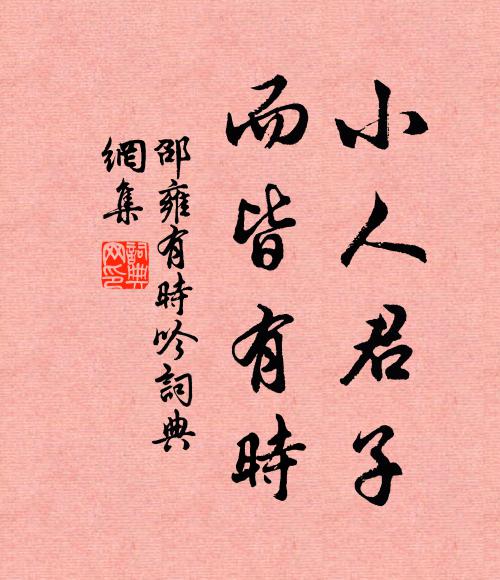 小人君子
而皆有時
邵雍有時吟詞典
網集
詞典網印